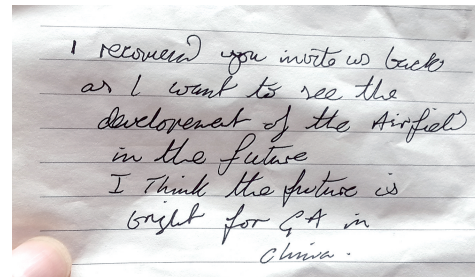 I recomend you invite us back
as I want to see the
developement of the Airfield
in the future
I Think the future is
bright for GA in
China.